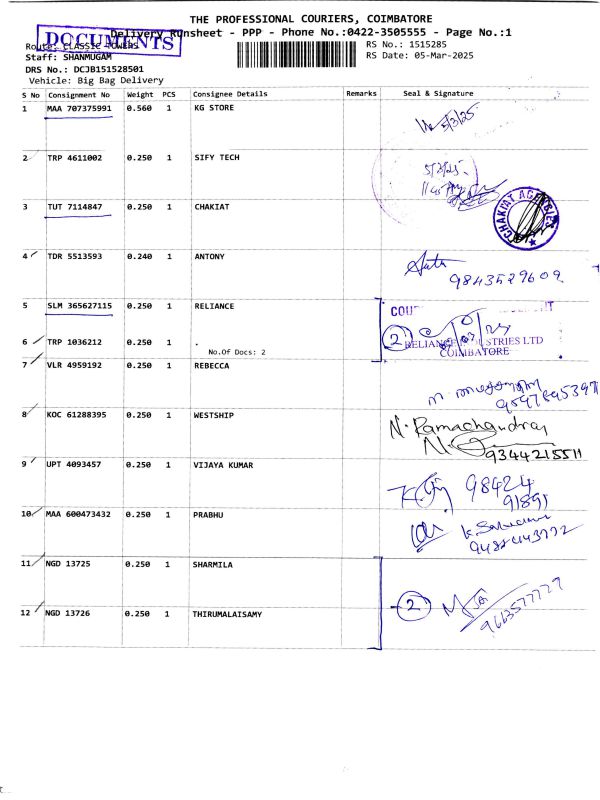 THE PROFESSIONAL COURIERS, COIMBATORE
Delivery Runsheet - PPP - Phone No.:0422-3505555 - Page No.:1
DOCUMENTS
Route: CLASSIC TOWERS
RS No.: 1515285
Staff: SHANMUGAM
RS Date: 05-Mar-2025
DRS No.: DCJB151528501
Vehicle: Big Bag Delivery
S No Consignment No Weight PCS Consignee Details Remarks Seal & Signature
1 MAA 707375991 0.560 1 KG STORE
5/3/25
2 TRP 4611002 0.250 1 SIFY TECH
5/3/25
3 TUT 7114847 0.250 1 CHAKIAT
CHAKIAT AGENCIES
4 TDR 5513593 0.240 1 ANTONY
9843529609
5 SLM 365627115 0.250 1 RELIANCE
6 TRP 1036212 0.250 1 .
No.Of Docs: 2
2
RELIANCE INDUSTRIES LTD
COIMBATORE
7 VLR 4959192 0.250 1 REBECCA
8 KOC 61288395 0.250 1 WESTSHIP
N. Ramachandran
9344215511
9 UPT 4093457 0.250 1 VIJAYA KUMAR
98424
91891
10 MAA 600473432 0.250 1 PRABHU
11 NGD 13725 0.250 1 SHARMILA
12 NGD 13726 0.250 1 THIRUMALAISAMY
2
9663577777